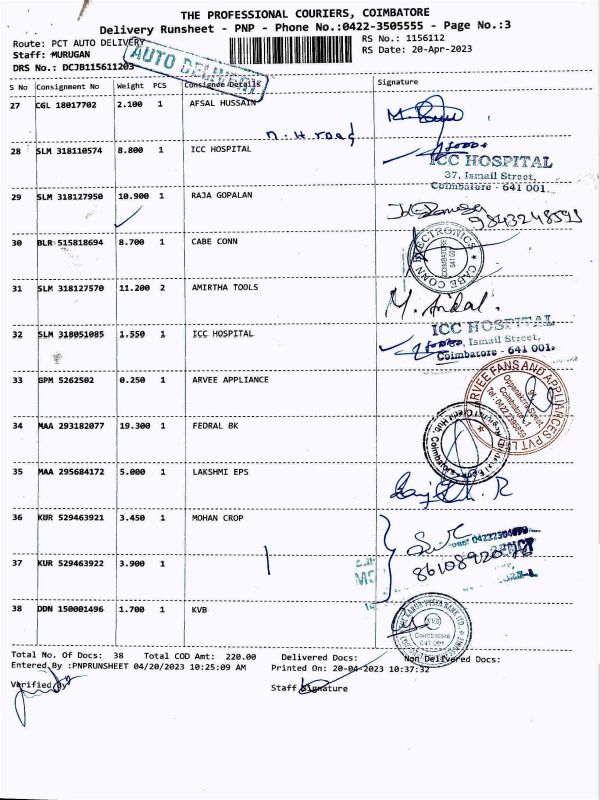 THE PROFESSIONAL COURIERS, COIMBATORE
Delivery Runsheet - PNP - Phone No.:0422-3505555 - Page No.:3
Route: PCT AUTO DELIVERY
RS No.: 1156112
Staff: MURUGAN
RS Date: 20-Apr-2023
DRS No.: DCJB115611203
AUTO DELIVERY
S No Consignment No Weight PCS Consignee Details Signature
27 CGL 18017702 2.100 1 AFSAL HUSSAIN
n.H road
28 SLM 318110574 8.800 1 ICC HOSPITAL
ICC HOSPITAL
37, Ismail Street,
Coimbatore - 641 001.
29 SLM 318127950 10.900 1 RAJA GOPALAN
9843248593
30 BLR 515818694 8.700 1 CABE CONN
CABE CONN ELECTRONICS
COIMBATORE
31 SLM 318127570 11.200 2 AMIRTHA TOOLS
M. Andal.
32 SLM 318051085 1.550 1 ICC HOSPITAL
ICC HOSPITAL
Ismail Street,
Coimbatore - 641 001.
33 GPM 5262502 0.250 1 ARVEE APPLIANCE
ARVEE FANS AND APPLIANCES PVT LTD
Oppanakara Street
Coimbatore-1
34 MAA 293182077 19.300 1 FEDRAL BK
35 MAA 295684172 5.000 1 LAKSHMI EPS
36 KUR 529463921 3.450 1 MOHAN CROP
37 KUR 529463922 3.900 1
38 DDN 150001496 1.700 1 KVB
KARUR VYSYA BANK LTD
KVB
Coimbatore
641 001
Total No. Of Docs: 38 Total COD Amt: 220.00 Delivered Docs: Non Delivered Docs:
Entered By :PNPRUNSHEET 04/20/2023 10:25:09 AM Printed On: 20-04-2023 10:37:32
Verified By
Staff Signature